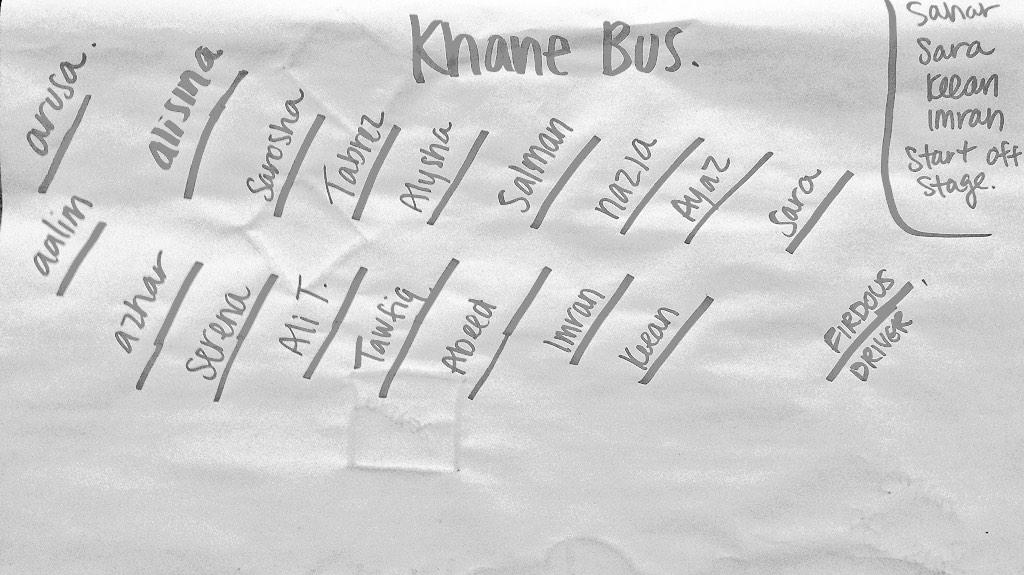 Khane Bus.
Sahar
Sara
Keean
Imran
Start off
Stage.
arusa.
alisina
Sarosha
Tabrez
Alysha
Salman
nazla
Ayaz
Sara
aalim
azhar
Serena
Ali T.
Tawfiq
Abeed
Imran
Keean
FIRDOUS
DRIVER